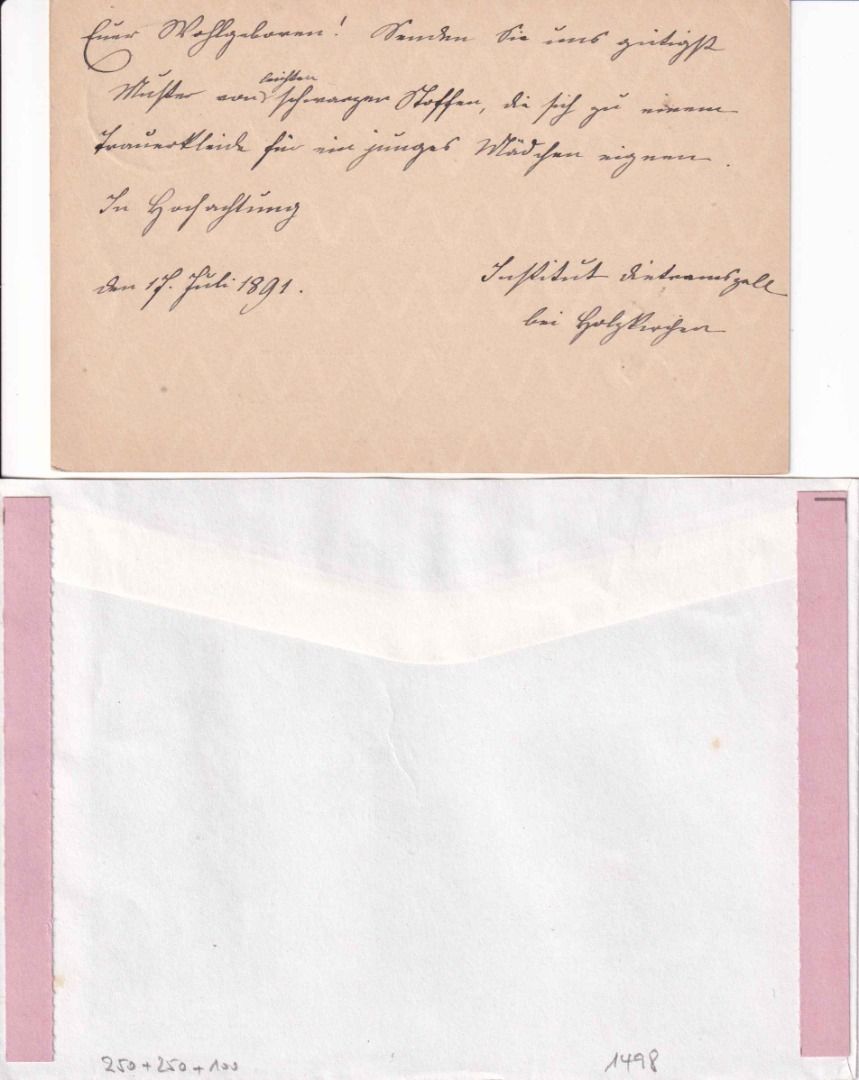 Euer Wohlgeboren! Senden Sie uns gütigst
Muster von leichten schwarzen Stoffen, die sich zu einem
Trauerkleide für ein junges Mädchen eignen.
In Hochachtung
den 17. Juli 1891.
Institut Dietramszell
bei Holzkirchen
250+250+100
1498